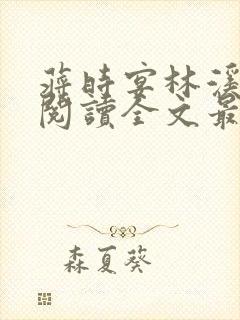 蔣時宴林溪
閱讀全文最
森夏葵